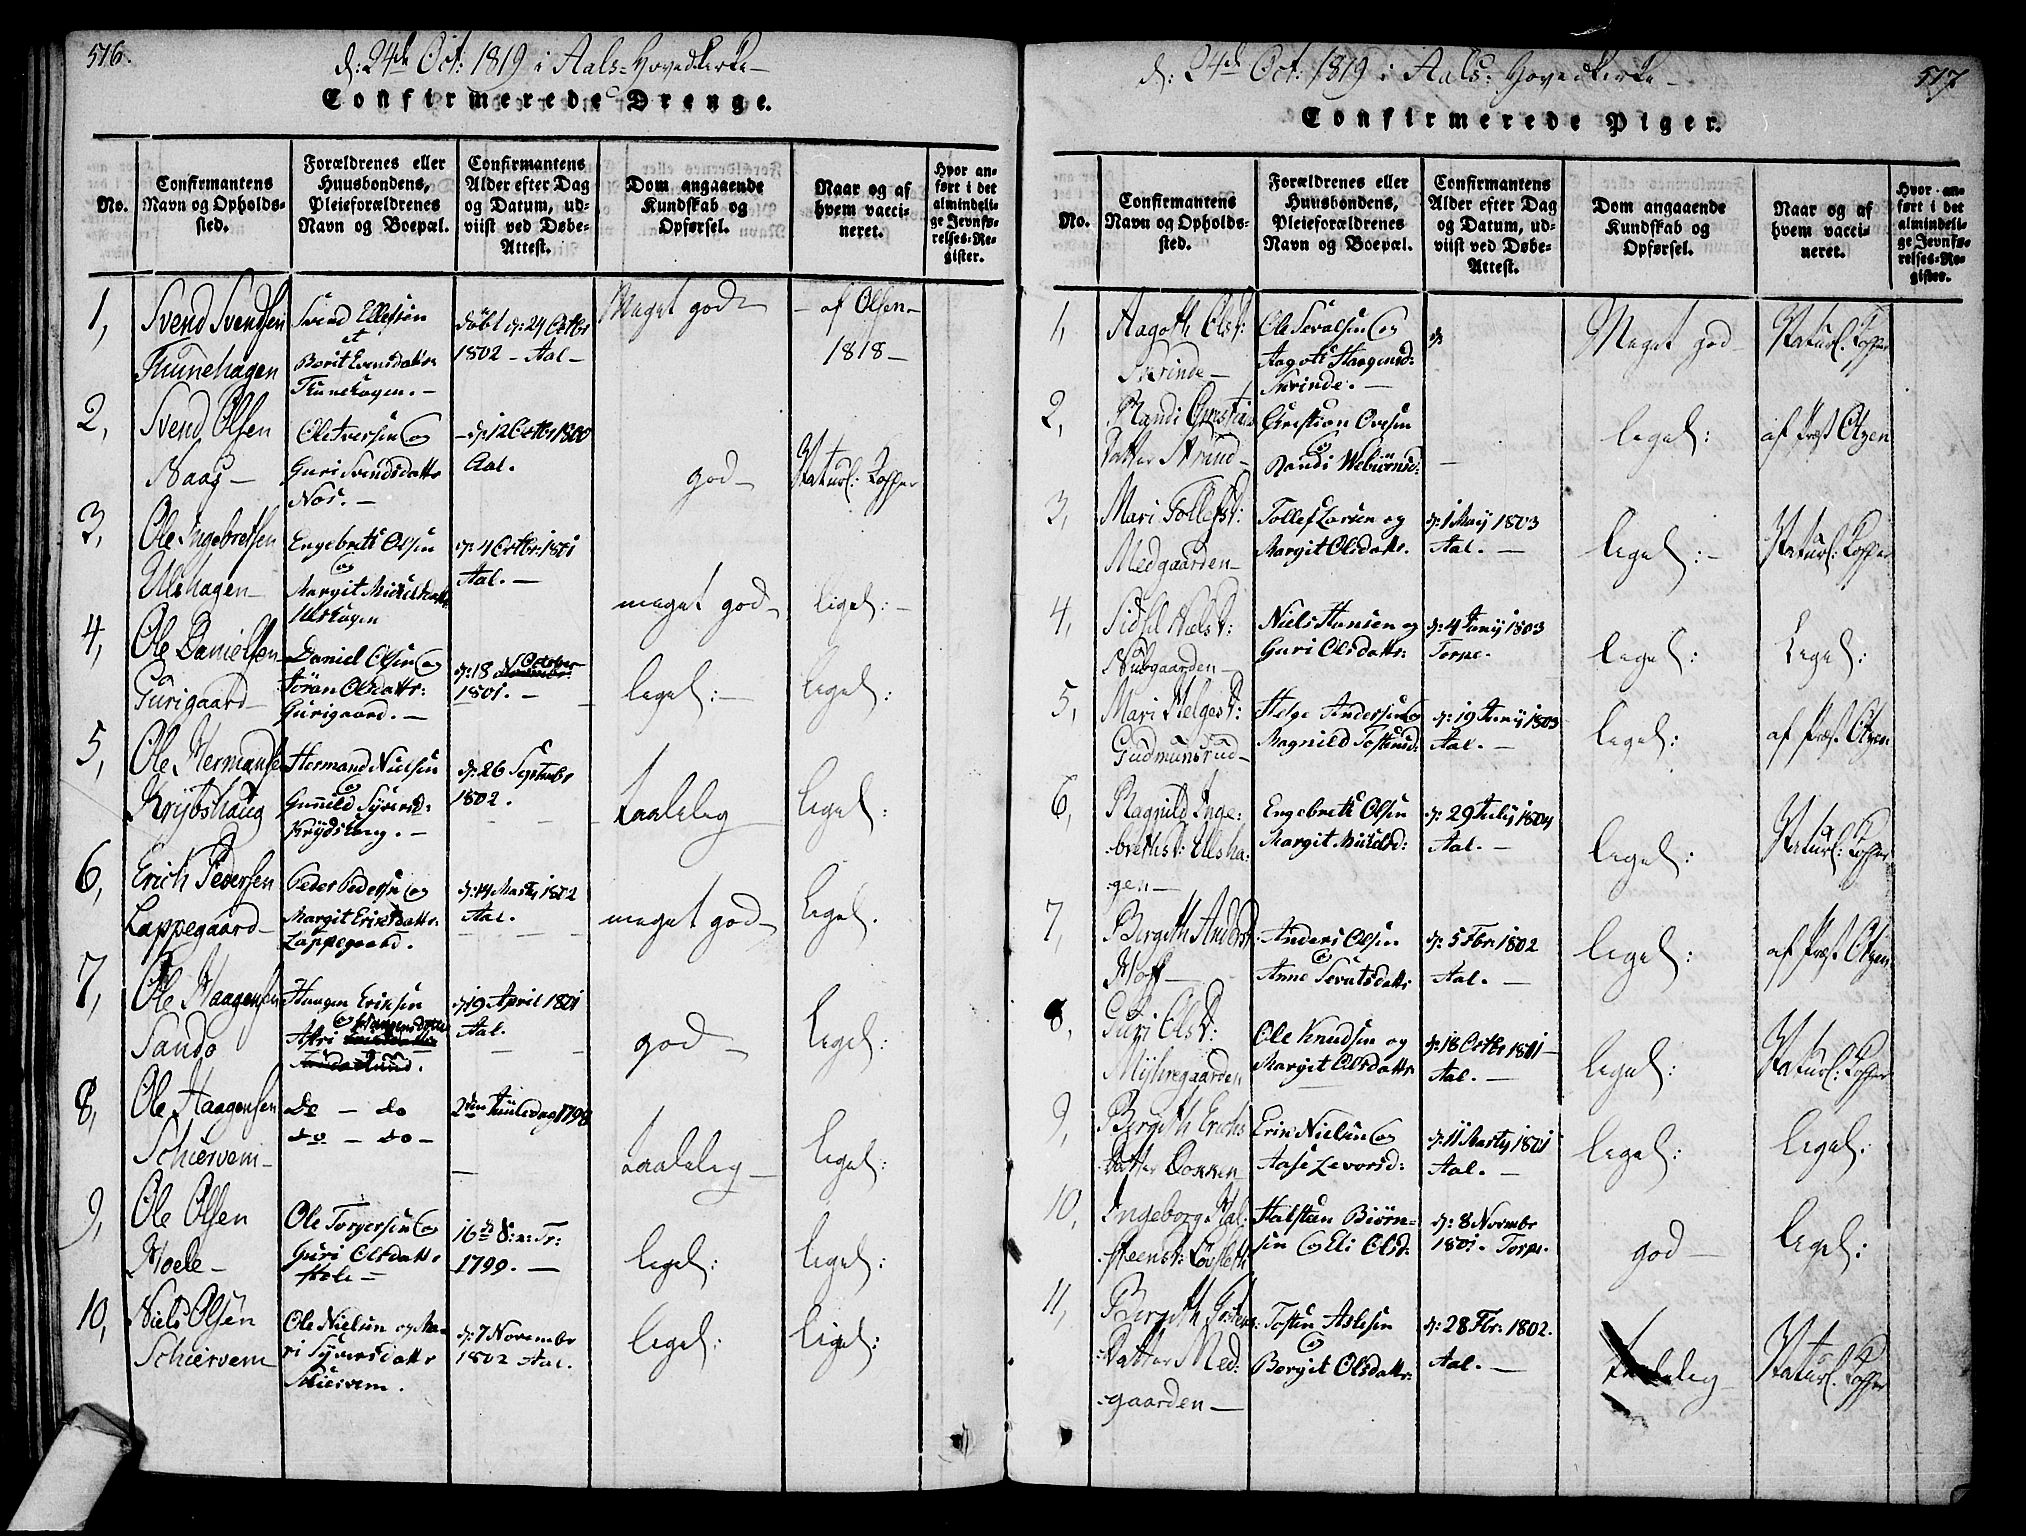 516.
d: 24de Oct: 1819 i Aals=Hovedkerke–
Confirmerede Drenge.
No.
Confirmantens
Navn og Opholds-
sted.
Forældrenes eller
Huusbondens,
Pleieforældrenes
Navn og Boepæl.
Confirmantens
Alder efter Dag
og Datum, ud-
viist ved Døbe-
Attest.
Dom angaaende
Kundskab og
Opførsel.
Naar og af
hvem vacci-
neret.
Hvor an-
ført i det
almindeli-
ge Jevnfø-
relses-Re-
gister.
1,
Svend Svendsen
Thunehagen
Svend Ellefsen
et
Borit Evensdattr
Tunehagen. –
døbt d: 24 Octbr
1802 – Aal –
Meget god –
– af Olsen –
1818 –
2,
Svend Olsen
Naas –
Ole Iversen og
Guri Svendsdattr
Nos. –
– d: 12 Octbr 1800
Aal.
god –
Naturl: Kopper
3,
Ole Ingebretsen
Ulshagen –
Engebrett Olsen
og
Margit Mickelsdattr
Ulshagen
d: 4 Octbr 1801
Aal. –
meget god –
ligel: –
4,
Ole Danielsen
Gurigaard –
Daniel Olsen og
Jöran Olsdattr:
Gurigaard. –
d: 18 October
1801. –
ligel: –
ligel:
5,
Ole Hermansen
Krydshaug
Hermand Nielsen
og
Gunild Syversd:
Krydshaug. –
d: 26 Septembr
1802.
taaleleg
ligel:
6,
Erich Pedersen
Lappegaard –
Peder Pedersen og
Margit Eriksdattr
Lappegaard.
d: 14 Marty 1802
Aal.
meget god –
ligel.
7,
Ole Haagensen
Sando
Haagen Eriksen
og Haagensdatter
Astri
d: 19 April 1801
Aal.
god –
ligel:
8,
Ole Haagensen
Schiervem –
do – do
do – do –
2den Juuledag 1798
taaleleg –
ligel:
9,
Ole Olsen
Hoele –
Ole Torgersen og
Guri Olsdattr
Hole =
16de S: e: Tr:
1799. –
ligel:
ligel:
10,
Niels Olsen
Schiervem
Ole Nielsen og Ma-
ri Syversdattr
Skiervem.
d: 7 Novembr
1802 Aal.
ligel:
ligel:
517
d: 24de Oct: 1819 i Aals: Hovedkerke –
Confirmerede Piger.
No.
Confirmantens
Navn og Opholds-
sted.
Forældrenes eller
Huusbondens,
Pleieforældrenes
Navn og Boepæl.
Confirmantens
Alder efter Dag
og Datum, ud-
viist ved Døbe-
Attest.
Dom angaaende
Kundskab og
Opførsel.
Naar og af
hvem vacci-
neret.
Hvor an-
ført i det
almindeli-
ge Jevnfø-
relses-Re-
gister.
1,
Aagoth Olsd:
Skrinde –
Ole Sevalsen og
Aagoth Haagensd:
Skrinde. –
d:
Meget god –
Naturl: Kopper
2,
Randi Christian
Datter Strand –
Christian Ovesen
og
Randi Webiörnsd:
–
ligel:
af Præst Olsen
3,
Mari Tollefsd:
Medgaarden –
Tollef Larsen og
Margit Olsdattr.
d: 1 May 1803
Aal. –
ligel: –
Naturl: Kopper
4,
Sidsel Nielsd:
Nubgaarden –
Niels Hansen og
Guri Olsdattr:
d: 4 Juny 1803
Torpe.
ligel:
Ligel:
5,
Mari Helgesd:
Gudmunsrud –
Helge Andersen og
Magnild Tostensd:
d: 19 Juny 1803
Aal. –
ligel:
af Præst Olsen
6,
Ragnild Inge:
brettsd: Ulsha:
gen –
Engebrett Olsen
Margit Mikelsd:
d: 29 July 1804
Aal. –
ligel:
Naturl: Kopper
7,
Bergith Andersd:
Hoff –
Anders Olsen
og
Anne Sevatsdattr
d: 5 Fbr: 1802
Aal. –
ligel:
af Præst Olsen
8,
Guri Olsd:
Myhregaarden
Ole Knudsen og
Margit Olsdattr
d: 18 Octbr 1801 –
Aal. –
ligel:
Naturl: Kopper
9,
Bergith Erichs
Datter Dokken
Erik Nielsen og
Aase Levorsd:
d: 11 Marty 1801
Aal. –
ligel:
ligel:
10,
Ingeborg Hal:
steensd: Löysleth
Halsteen Biörn-
sen og Eli Olsd:
d: 8 Novembr
1801. Torpe.
god –
ligel:
11,
Bergith Tostens:
Datter Med:
gaarden –
Tosten Aslesen
og
Bergit Olsdattr:
d: 28 Fbr: 1802.
Aal. –
taaleleg –
Naturl: Kopper